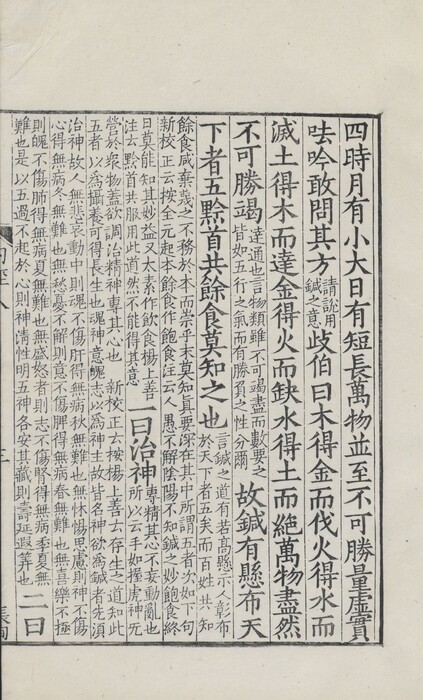 四時月有小大日有短長萬物並至不可勝量虛實
呿吟敢問其方請說用鍼之意歧伯曰木得金而伐火得水而
滅土得木而達金得火而缺水得土而絕萬物盡然
不可勝竭達通也言物類雖不可竭盡而數要之皆如五行之氣而有勝負之性分爾故鍼有懸布天
下者五黔首共餘食莫知之也言鍼之道有若高懸示人彰布於天下者五矣而百姓共知
餘食咸棄蔑之不務於本而崇乎末莫知真要深在其中所謂五者次如下句
新校正云按全元起本餘食作飽食注云人愚不解陰陽不知鍼之妙飽食終
日莫能知其妙益又太素作飲食楊上善注云黔首共服用此道然不能得其意一曰治神專精其心不妄動亂也所以云手如握虎神无
營於衆物蓋欲調治精神專其心也 新校正云按楊上善云存生之道知此
五者以爲攝養可得長生也魂神意魄志以爲神主故皆名神欲爲鍼者先湏
治神故人無悲哀動中則魂不傷肝得無病秋無難也無怵惕思慮則神不傷
心得無病冬無難也無愁憂不解則意不傷脾得無病春無難也無喜樂不極
則魄不傷肺得無病夏無難也無盛怒者則志不傷腎得無病季夏無
難也是以五過不起於心則神清性明五神各安其藏則壽延遐筭也二曰